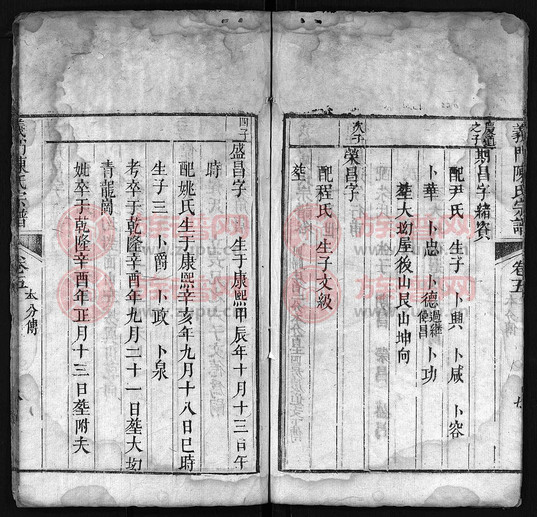 義門陳氏宗譜
卷五
太分傳
慶道之子
期昌字緒賓
配尹氏 生子 卜興 卜咸 卜容
卜華 卜忠 卜德過繼俊昌 卜功
塟大坳屋後山艮山坤向
次子
榮昌字
配程氏 生子文級
塟
四子
盛昌字 生于康熙甲辰年十月十三日午
時
配姚氏生于康熙辛亥年九月十八日巳時
生子三 卜爵 卜政 卜泉
考卒于乾隆辛酉年九月二十一日塟大坳
青龍崗
妣卒于乾隆辛酉年正月十三日塟附夫
義門陳氏宗譜
卷五
太分傳